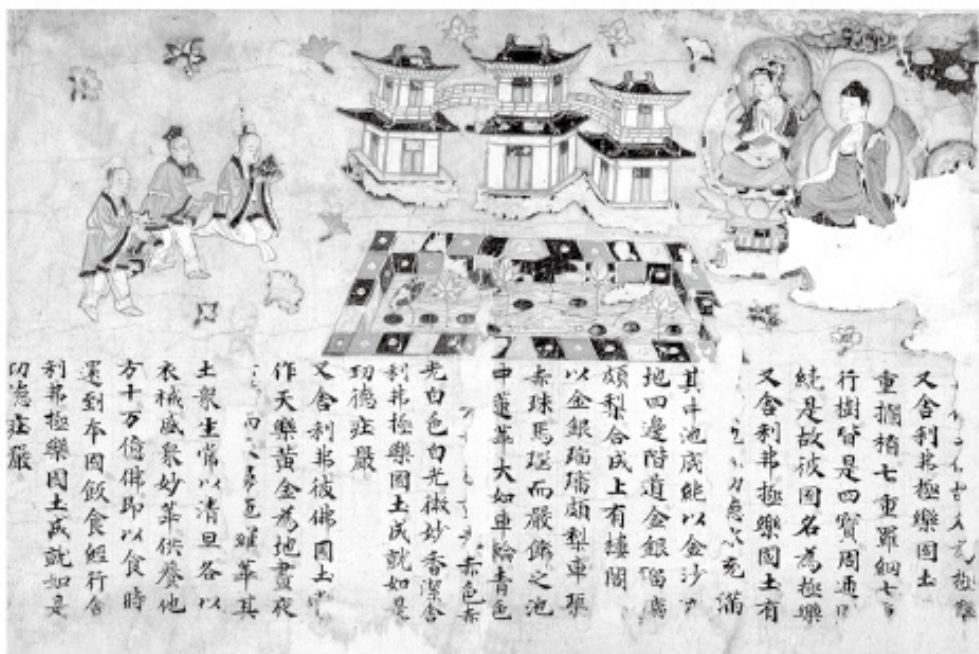 極樂
又舍利弗極樂國土
重欄楯七重羅網七
行樹皆是四寶周通
繞是故彼國名為極樂
又舍利弗極樂國土有
充滿
其中池底純以金沙
地四邊階道金銀瑠璃
頗梨合成上有樓閣
以金銀瑠璃頗梨車磲
赤珠馬瑙而嚴飾之池
中蓮華大如車輪青色
赤色赤
光白色白光微妙香潔舍
利弗極樂國土成就如是
功德莊嚴
又舍利弗彼佛國土常
作天樂黃金為地晝夜
而 華其
土衆生常以清旦各以
衣裓盛衆妙華供養他
方十万億佛即以食時
還到本國飯食經行舍
利弗極樂國土成就如是
功德莊嚴